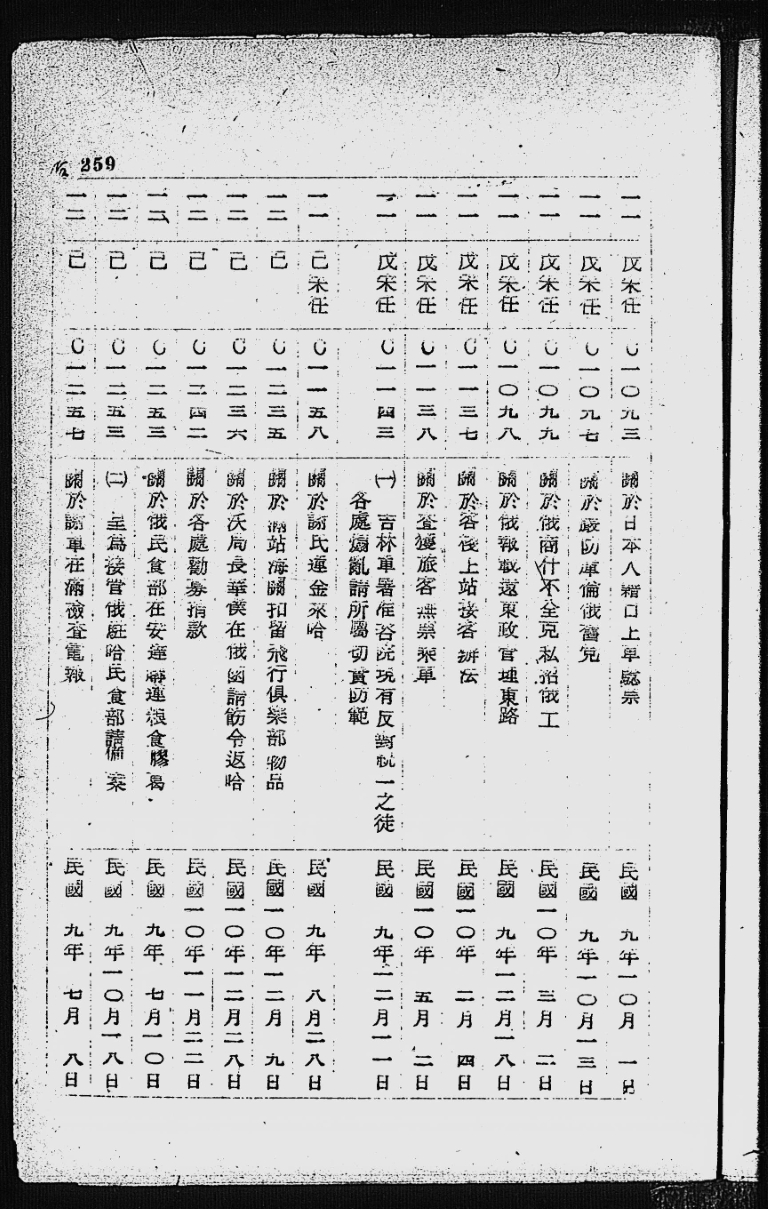 259
一一 戊宋任 〇一〇九三 關於日本人藉口上車驗票 民國 九年一〇月 一日
一一 戊宋任 〇一〇九七 關於嚴防庫倫俄舊兒 民國 九年一〇月一三日
一一 戊宋任 〇一〇九九 關於俄商什不全克私招俄工 民國一〇年 三月 二日
一一 戊宋任 〇一〇九八 關於俄報載遠東政官理東路 民國 九年一二月一八日
一一 戊宋任 〇一一三七 關於客棧上站接客辦法 民國一〇年 二月 四日
一一 戊宋任 〇一一三八 關於查獲旅客無票乘車 民國一〇年 五月 二日
一一 戊宋任 〇一一四三 ㈠ 吉林軍署准咨院現有反對統一之徒 民國 九年一二月一一日
各處煽亂請所屬切實防範
一一 己宋任 〇一一五八 關於謝氏運金來哈 民國 九年 八月二八日
一二 己 〇一二三五 關於滿站海關扣留飛行俱樂部物品 民國一〇年一二月 九日
一二 己 〇一二三六 關於沃局長華僕在俄國請飭令返哈 民國一〇年一二月二八日
一二 己 〇一二四二 關於各處勸募捐款 民國一〇年一一月二二日
一二 己 〇一二五三 關於俄民食部在安達購運糧食膠葛 民國 九年 七月一〇日
一二 己 〇一二五三 ㈡ 呈為接管俄駐哈民食部請備案 民國 九年一〇月一八日
一二 己 〇一二五七 關於謝軍在滿檢查電報 民國 九年 七月 八日